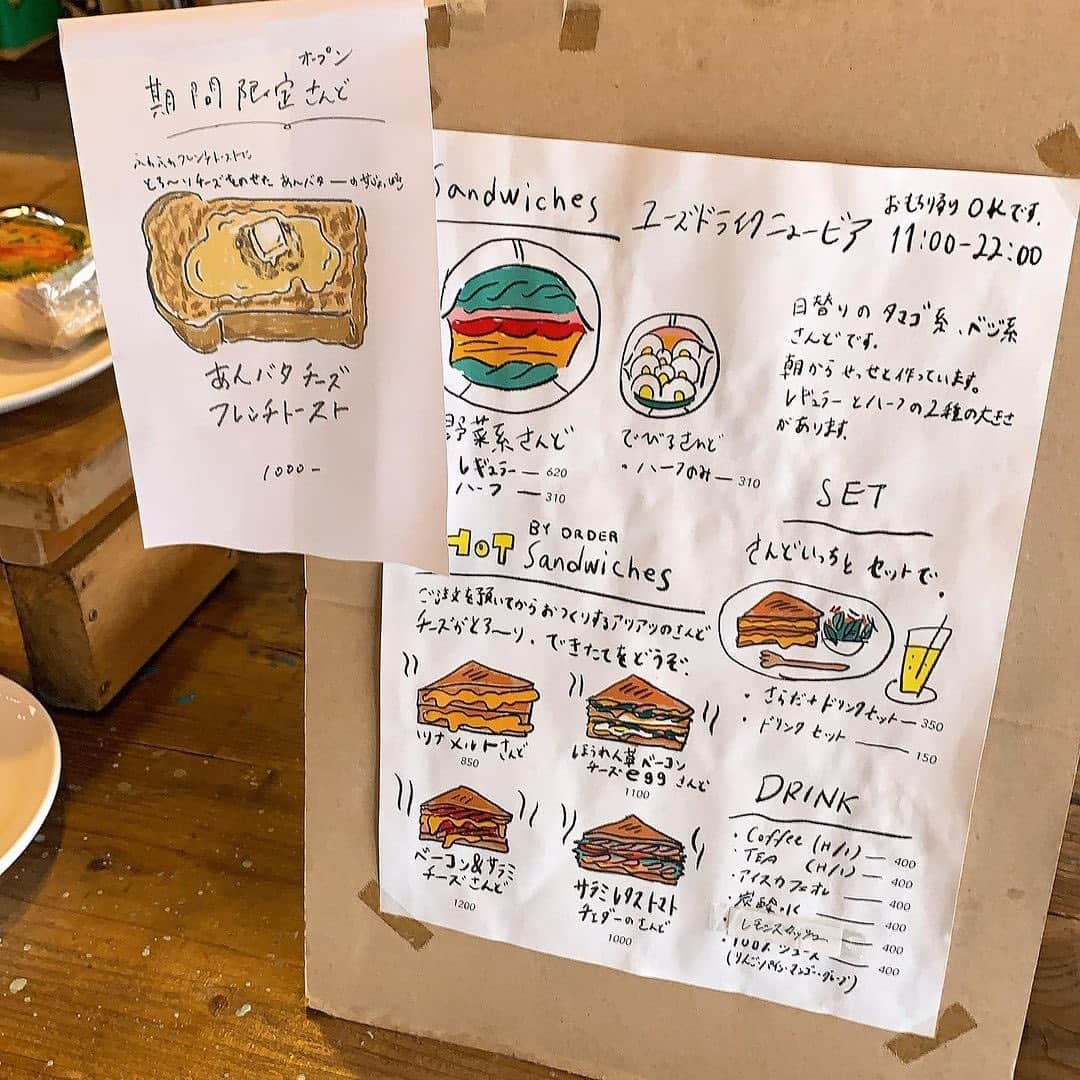 オープン
期間限定さんど
ふわふわフレンチトーストに
とろ〜りチーズをのせた あんバター
あんバタチーズ
フレンチトースト
1000-
Sandwiches
ユーズドライクニュービア
おもち帰り OKです.
11:00-22:00
日替りの タマゴ系、ベジ系
さんどです。
朝から せっせと作っています。
レギュラー とハーフの2種の大きさ
があります.
野菜系さんど
レギュラー — 620
ハーフ — 310
でびるさんど
・ハーフのみ — 310
HOT BY ORDER
Sandwiches
ご注文を頂いてからおつくりするアツアツのさんど
チーズがとろ〜り. できたてをどうぞ.
ツナメルトさんど
850
ほうれん草ベーコン
チーズeggさんど
1100
ベーコン&サラミ
チーズさんど
1200
サラミレタストマト
チェダーのさんど
1000
SET
さんどいっちと セットで.
・さらだ+ドリンクセット — 350
・ドリンク セット — 150
DRINK
・Coffee (H/I) — 400
・TEA (H/I) — 400
・アイスカフェオレ — 400
・炭酸水 — 400
・レモンスカッシュ — 400
・100%ジュース — 400
(りんご・パイン・マンゴー・グレープ)